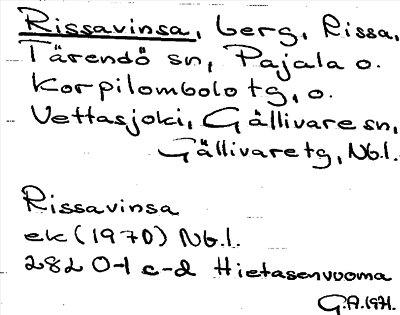 Rissavinsa, berg, Rissa,
Tärendö sn, Pajala o.
Korpilombolo tg, o.
Vettasjoki, Gällivare sn,
Gällivare tg, Nb.l.
Rissavinsa
ek (1970) Nb.l.
282 O-1 c-d Hietasenvuoma
G.A. 1971.